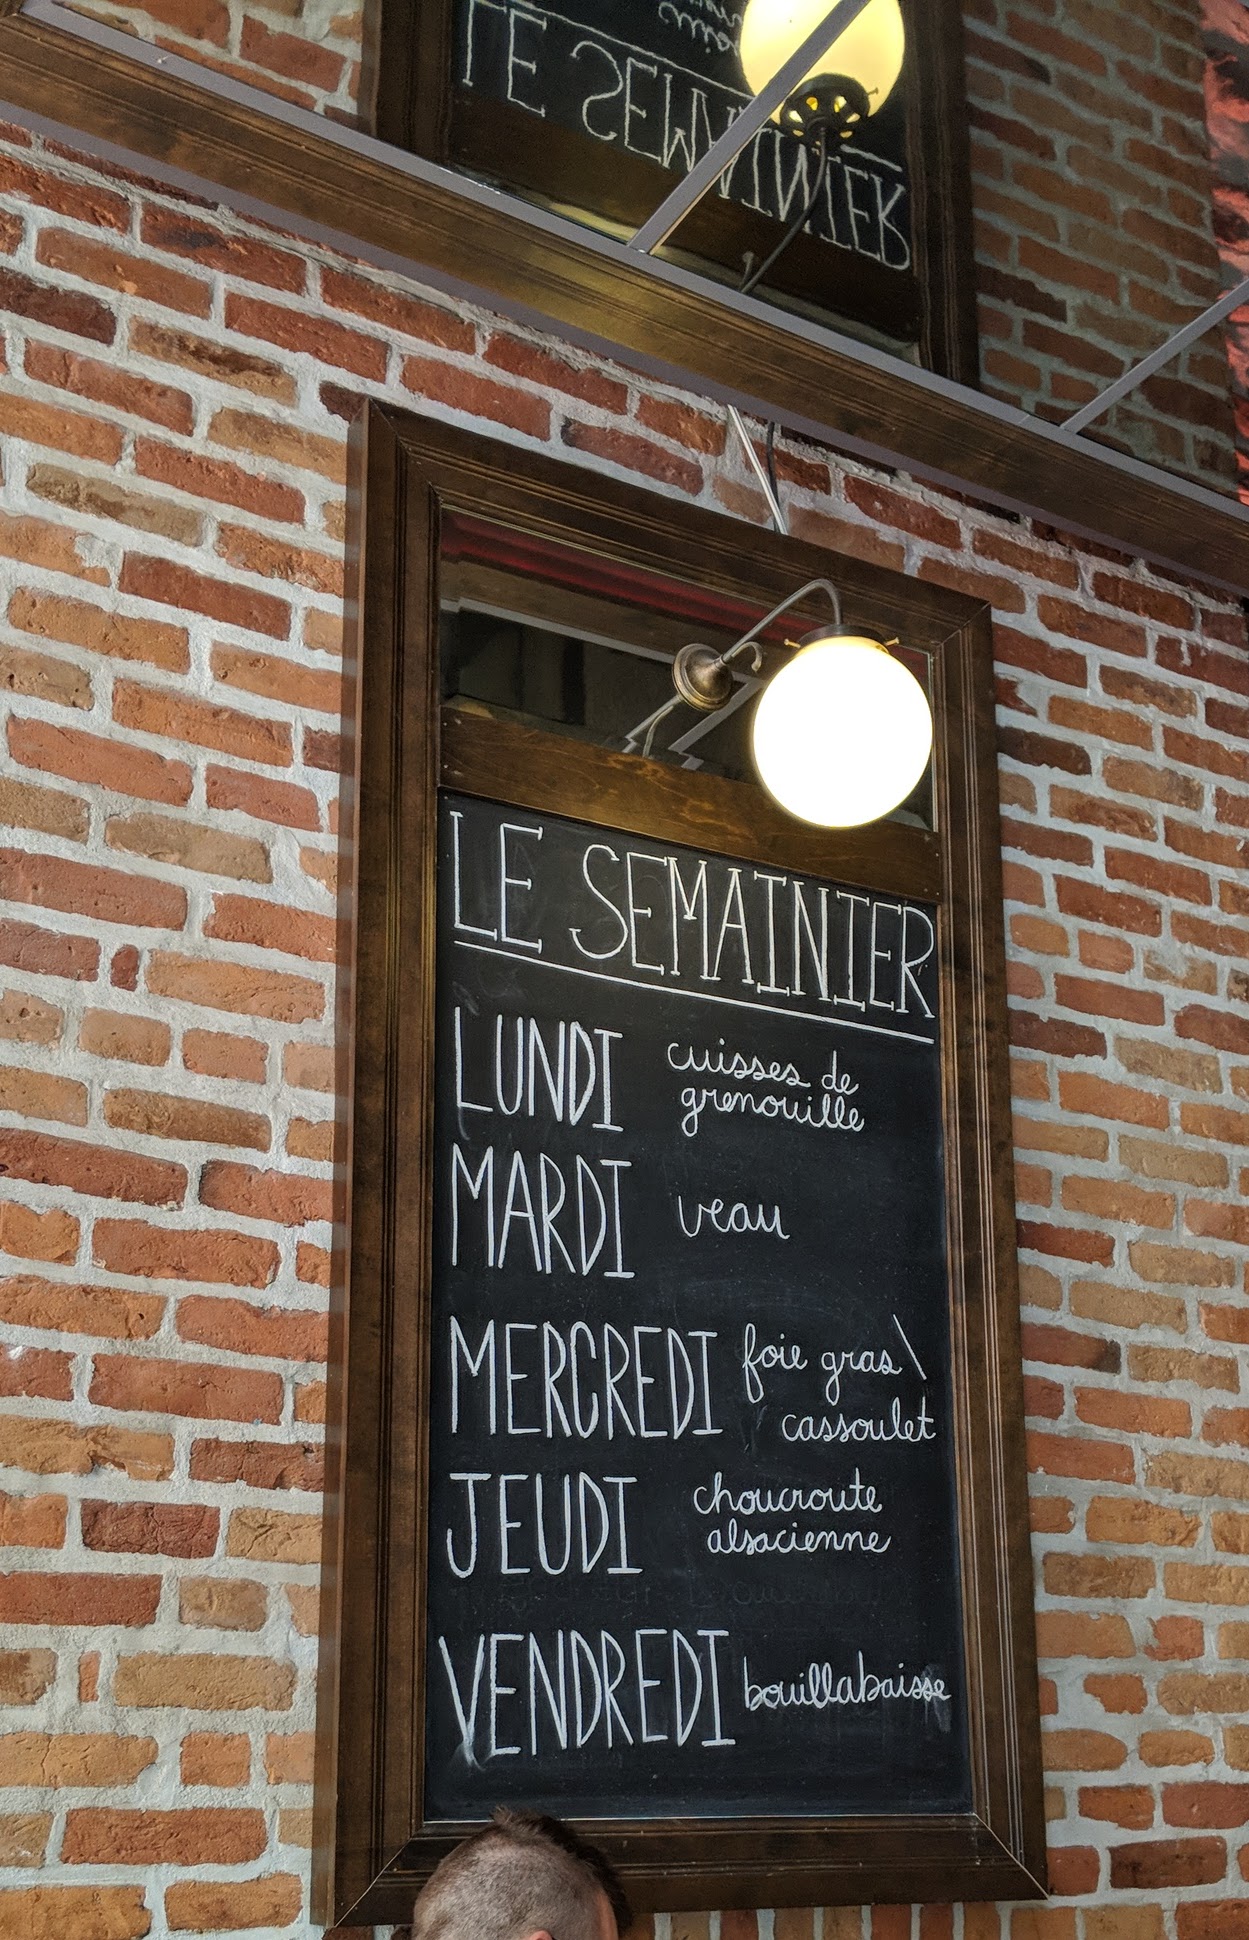 LE SEMAINIER
LE SEMAINIER
LUNDI cuisses de
grenouille
MARDI veau
MERCREDI foie gras \
cassoulet
JEUDI choucroute
alsacienne
VENDREDI bouillabaisse